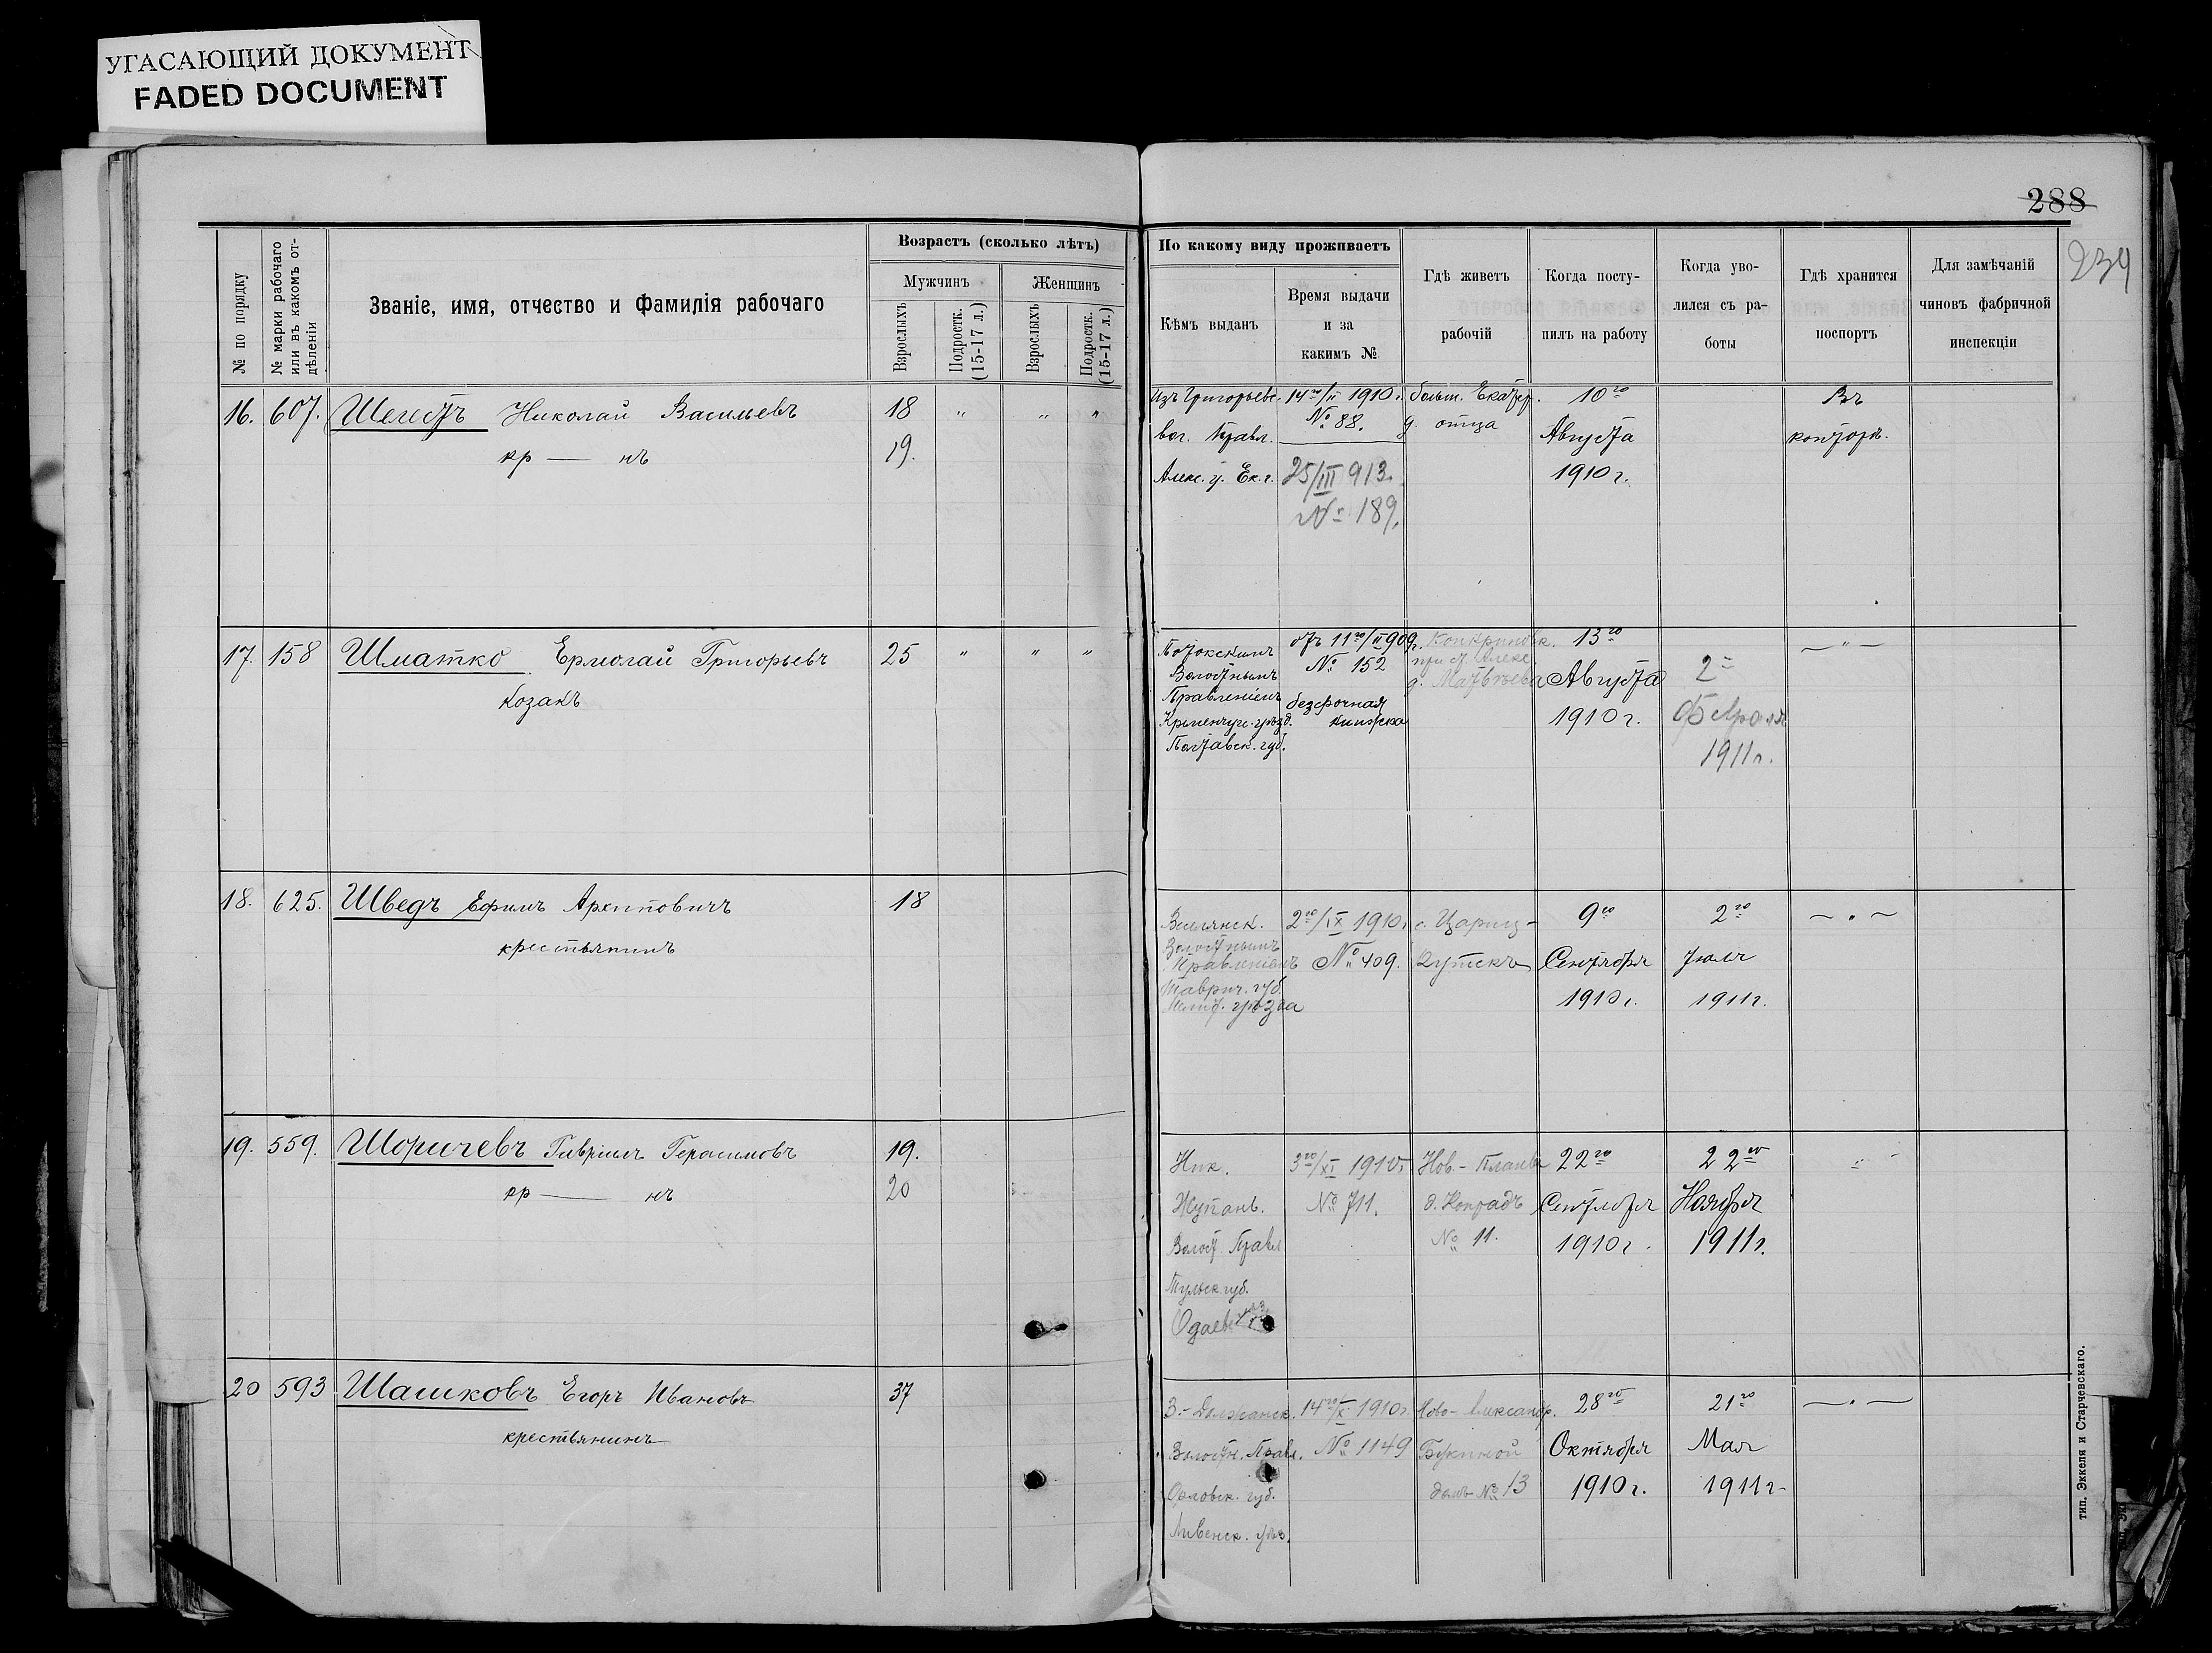 УГАСАЮЩИЙ ДОКУМЕНТ
FADED DOCUMENT
288
239
№ по порядку
№ марки рабочаго
или въ какомъ от-
дѣленіи
Званіе, имя, отчество и фамилія рабочаго
Возрастъ (сколько лѣтъ)
Мужчинъ
Женщинъ
Взрослыхъ
Подростк.
(15-17 л.)
Взрослыхъ
Подростк.
(15-17 л.)
По какому виду проживаетъ
Кѣмъ выданъ
Время выдачи
и за
какимъ №
Гдѣ живетъ
рабочій
Когда посту-
пилъ на работу
Когда уво-
лился съ ра-
боты
Гдѣ хранится
поспортъ
Для замѣчаній
чиновъ фабричной
инспекціи
16. 607. Шелестъ Николай Васильевъ 18 " " "
кр — нъ 19.
Изъ Григорьевс.
вол. Правл.
Алекс. у. Ек. г.
14го/II 1910 г.
№ 88.
25/III 913 г.
№ 189.
больш. Екатер.
д. отца
10го
Августа
1910 г.
Въ
конторѣ.
17. 158 Шматко Ермолай Григорьевъ 25 " " "
козакъ
Потокскимъ
Волостнымъ
Правленіемъ
Кременчуг. уѣзд.
Полтавск. губ.
отъ 11го/II 909
№ 152
безсрочная
книжка
д. Матвѣева
13го
Августа
1910 г.
2го
Февраля
1911 г.
— " —
18. 625. Шведъ Ефимъ Архиповичъ 18
крестьянинъ
Веселянск.
Волостнымъ
Правленіемъ
Таврич. губ.
Мелит. уѣзда
2го/IX 1910 г.
№ 409.
с. Цариц-
Кутскъ
9го
Сентября
1910 г.
2го
Іюля
1911 г.
— " —
19. 559. Шоричевъ Гавріилъ Герасимовъ 19.
кр — нъ 20
Ник.
Жупань.
Волост. Правл.
Тульск. губ.
Одаевс. уѣз.
3го/XI 1910 г.
№ 711.
Нов.- Планъ
д. Конрадъ
№ 11.
22го
Сентября
1910 г.
22го
Ноября
1911 г.
" -
20 593 Шашковъ Егоръ Ивановъ 37
крестьянинъ
З.- Должанск.
Волостн. Правл.
Орловск. губ.
Ливенск. уѣз.
14го/X 1910 г.
№ 1149
Ново- Александр.
Букиной
домъ № 13
28го
Октября
1910 г.
21го
Мая
1911 г.
— " —
тип. Эккеля и Старчевскаго.